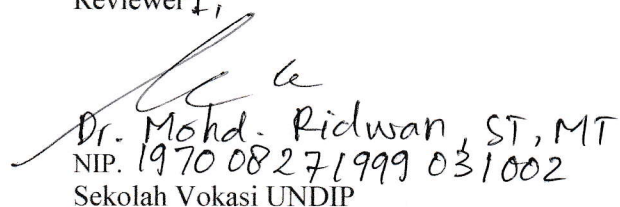 Reviewer 1,
Dr. Mohd. Ridwan, ST, MT
NIP. 19700827 1999 031002
Sekolah Vokasi UNDIP